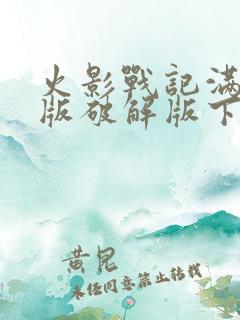 火影戰記滿
版破解版下
黄昆
未经同意禁止转载